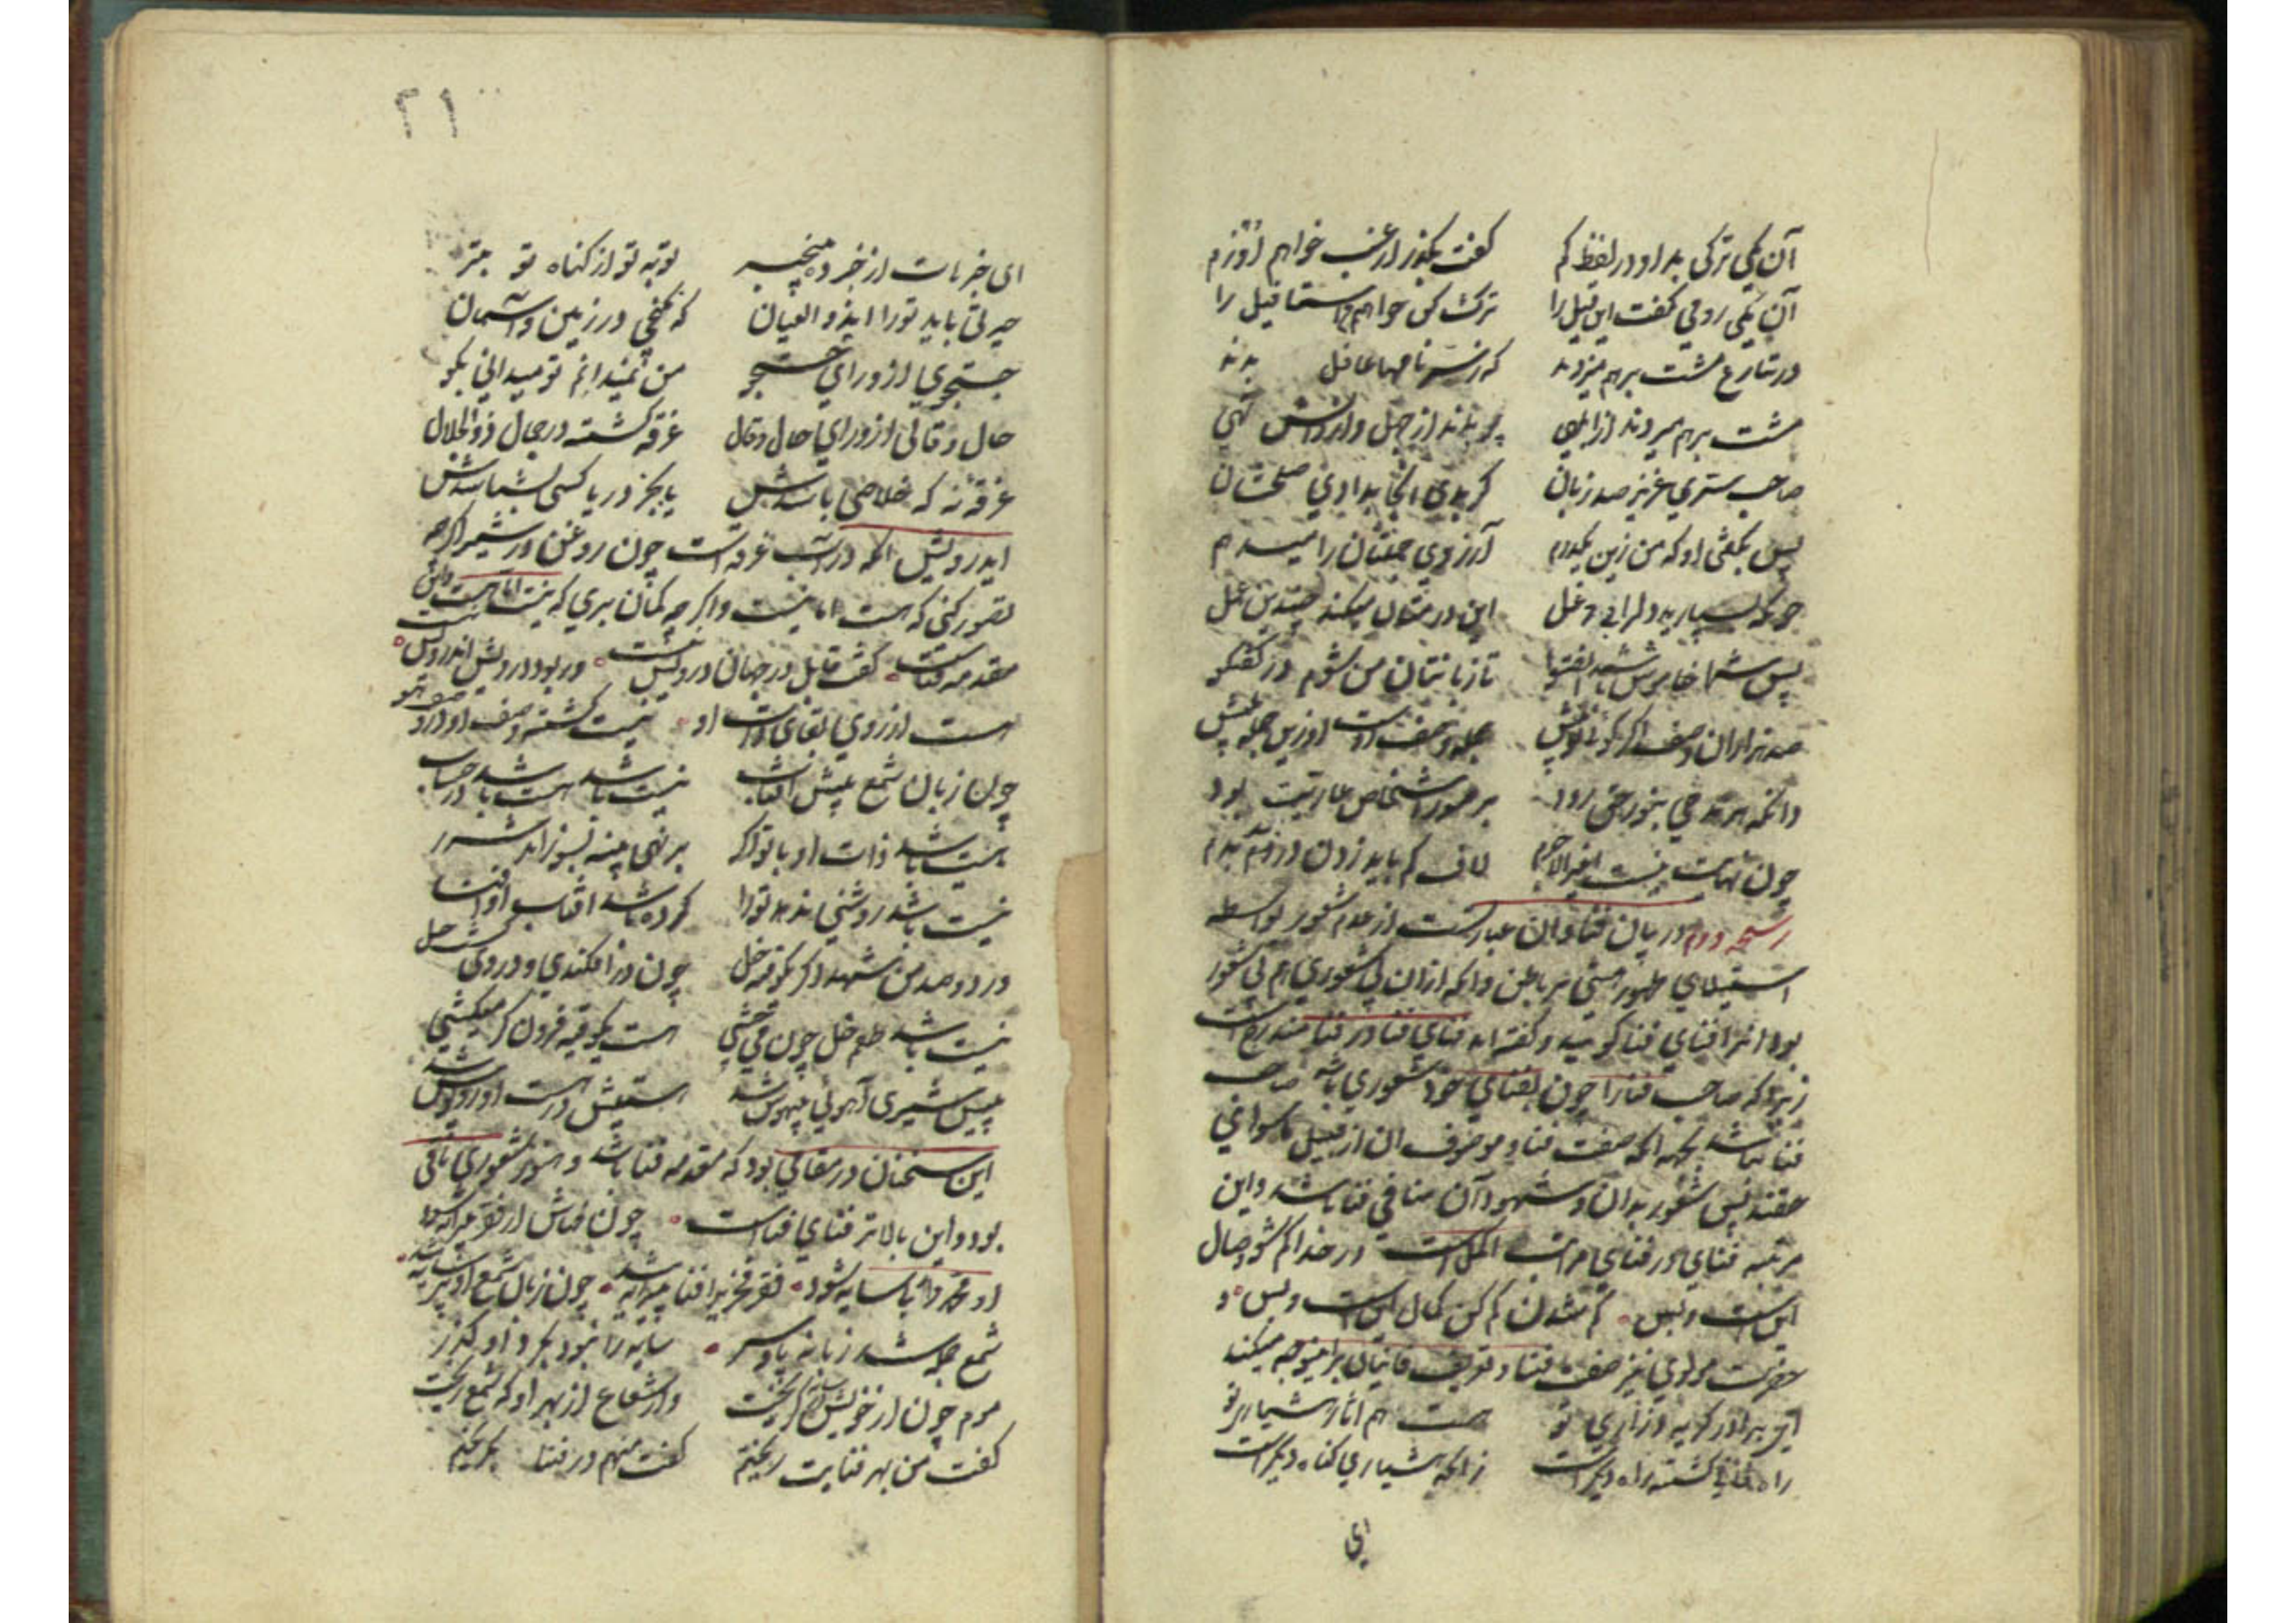 آن یکی ترکی بد او در لفظ کم گفت بگذر از عنب خواهم اوزم
آن یکی رومی گفت این قیل را ترک کن خواهم من استافیل را
در تنازع مشت بر هم میزدند که ز سر نامها غافل بدند
مشت بر هم میزدند از ابلهی پر بدند از جهل و از دانش تهی
صاحب سری عزیز صد زبان گر بدی آنجا بدادی صلحشان
پس بگفتی او که من زین یکدرم آرزوی جملتان را میدهم
چونکه بسپارید دل را بی دغل این درمتان میکند چندین عمل
پس شما خاموش باشید انصتوا تا زبانتان من شوم در گفتگو
صد هزاران وصف اگر گوئی و بیش جمله وصف اوست او زین جمله پیش
دانکه هر مدحی بنور حق رود بر صور اشخاص عاریت بود
چون نهایت نیست این را لاجرم لاف کم باید زدن در زد دم
رشحه دوم در بیان فنا و آن عبارتست از عدم شعور بواسطه
استیلای ظهور هستی بر باطن و آنکه از آن بی شعوری هم بی شعور
بود آنرا فنای فنا گویند و گفته اند فنای فنا در فنا مندرج است
زیرا که صاحب فنا را چون بفنای خود شعوری باشد صاحب
فنا نباشد بجهه آنکه صفت فنا و موصوف آن از قبیل ماسوا اند
حقند پس شعور به آن و شهود آن منافی فنا باشد و این
مرتبه فنای در فنای مراتب اکمل است در خدا گم شو وصال
این است و بس گم شدن گم کن کمال این است و بس و
حضرت مولوی نیز صفت فنا و تعریف فانیان برین وجه میکند
ای برادر گریه و زاری تو هست هم آثار هشیاری تو
راه فانی گشته راه دیگر است زانکه هشیاری گناه دیگر است
ای
٢١
ای خبرهات از خبر ده بیخبر توبه تو از گناه تو بتر
حیرتی باید تورا اندر العیان که نگنجی در زمین و آسمان
جستجوی از ورای جستجو من نمیدانم تو میدانی بگو
حال و قالی از ورای حال و قال غرقه گشته در جمال ذوالجلال
غرقه نه که خلاصی باشدش یا بجز دریا کسی بشناسدش
ایدرویش آنکه در آب غرقه است چون روغن در شیر اگر چه
تصور کنی که هست اما نیست و اگر چه گمان بری که نیست اما هست و این
مقدمه فناست گفت قایل در جهان درویش نیست ور بود درویش آن درویش نیست
هست از روی بقای ذات او نیست گشته وصف او در وصف هو
چون زبان شمع پیش آفتاب نیست باشد هست باشد در حساب
هست باشد ذات او تا تو اگر بر نهی پنبه بسوزاند شرر
نیست باشد روشنی ندهد تورا کرده باشد آفتاب او را فنا
در دو صد من شهد اگر یکوقیه خل چون در افکندی و در وی گشت حل
نیست باشد طعم خل چون می چشی هست یکوقیه فزون گر میکشی
پیش شیری آهوئی بیهوش شد هستیش در هست او روپوش شد
این سخنان در مقامی بود که مقدمه فنا باشد و هنوز شعوری باقی
بود و این بالاتر فنای فناست چون فناش از فقر پیرایه شود
او محمد وار بی سایه شود فقر فخری را فنا پیرایه شد چون زبان شمع او بی سایه شد
شمع جمله شد زبانه پا و سر سایه را نبود بگرد او گذر
موم چون از خویش و از سایه گریخت در شعاع از بهر او که شمع ریخت
گفت من بهر فنایت ریختم گفت منهم در فنا بگریختم